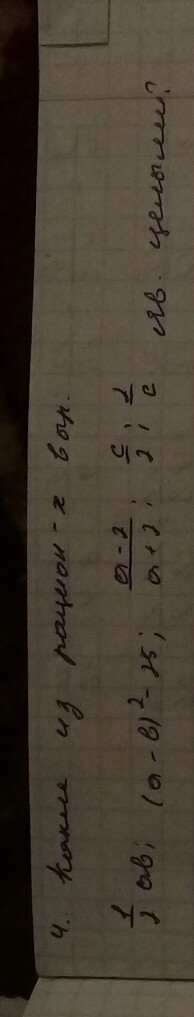 4. Какие из рацион-х выр.
1/2 ab; (a-b)² - 25; a-2/a+2; c/2; 2/c яв. целыми?